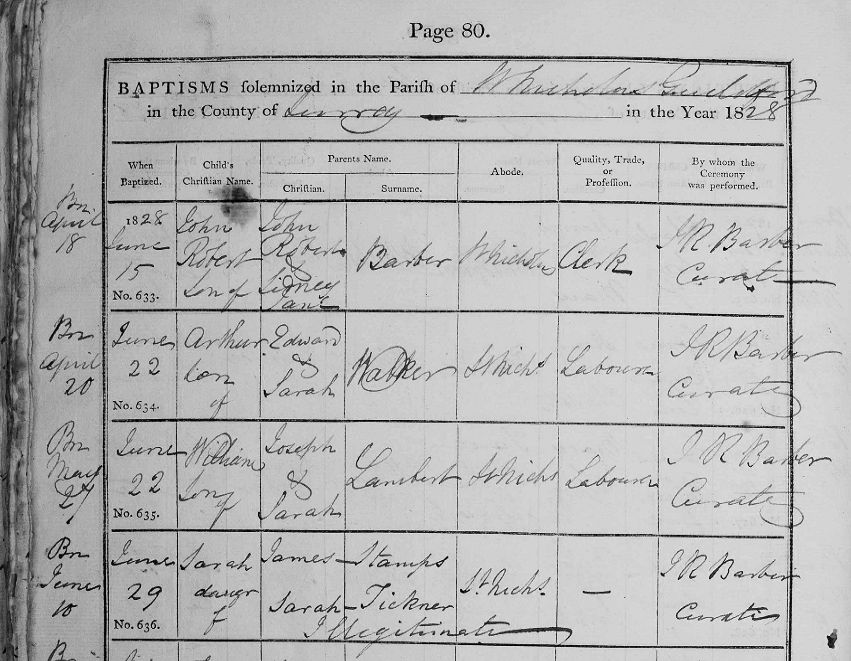 Page 80.
BAPTISMS solemnized in the Parish of St Nicholas Guildford
in the County of Surrey in the Year 1828
When Baptized.
Child's Christian Name.
Parents Name.
Christian.
Surname.
Abode.
Quality, Trade, or Profession.
By whom the Ceremony was performed.
Bn
April
18
1828
June
15
No. 633.
John
Robert
son of
John
Robert
&
Sidney
Jane
Barber
St Nicholas
Clerk
J R Barber
Curate
Bn
April
20
June
22
No. 634.
Arthur
son
of
Edward
&
Sarah
Walker
St Nichs
Labourer
J R Barber
Curate
Bn
May
27
June
22
No. 635.
William
son
of
Joseph
&
Sarah
Lambert
St Nichs
Labourer
J R Barber
Curate
Bn
June
10
June
29
No. 636.
Sarah
daugr
of
James — Stamps
Sarah — Tickner
Illegitimate
St Nichs
—
J R Barber
Curate
Bn